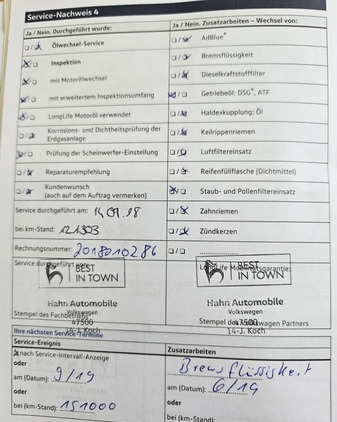 Service-Nachweis 4
Ja / Nein. Durchgeführt wurde:
Ölwechsel-Service
Inspektion
mit Motorölwechsel
mit erweitertem Inspektionsumfang
LongLife Motoröl verwendet
Korrosions- und Dichtheitsprüfung der
Erdgasanlage
Prüfung der Scheinwerfer-Einstellung
Reparaturempfehlung
Kundenwunsch
(auch auf dem Auftrag vermerken)
Service durchgeführt am:
bei km-Stand: 121303
Rechnungsnummer: 2018010286
Service durchgeführt
BEST
IN TOWN
Hahn Automobile
Volkswagen
Stempel des Fachbetriebs
47500
14-J. Koch
Ja / Nein. Zusatzarbeiten – Wechsel von:
AdBlue®
Bremsflüssigkeit
Dieselkraftstofffilter
Getriebeöl: DSG®, ATF
Haldexkupplung: Öl
Keilrippenriemen
Luftfiltereinsatz
Reifenfüllflasche (Dichtmittel)
Staub- und Pollenfiltereinsatz
Zahnriemen
Zündkerzen
BEST
IN TOWN
Hahn Automobile
Volkswagen
47500
14-J. Koch
Ihre nächsten Service-Termine
Service-Ereignis
nach Service-Intervall-Anzeige
oder
am (Datum): 9/19
oder
bei (km-Stand): 151000
Zusatzarbeiten
Bremsflüssigkeit
am (Datum): 6/19
oder
bei (km-Stand):